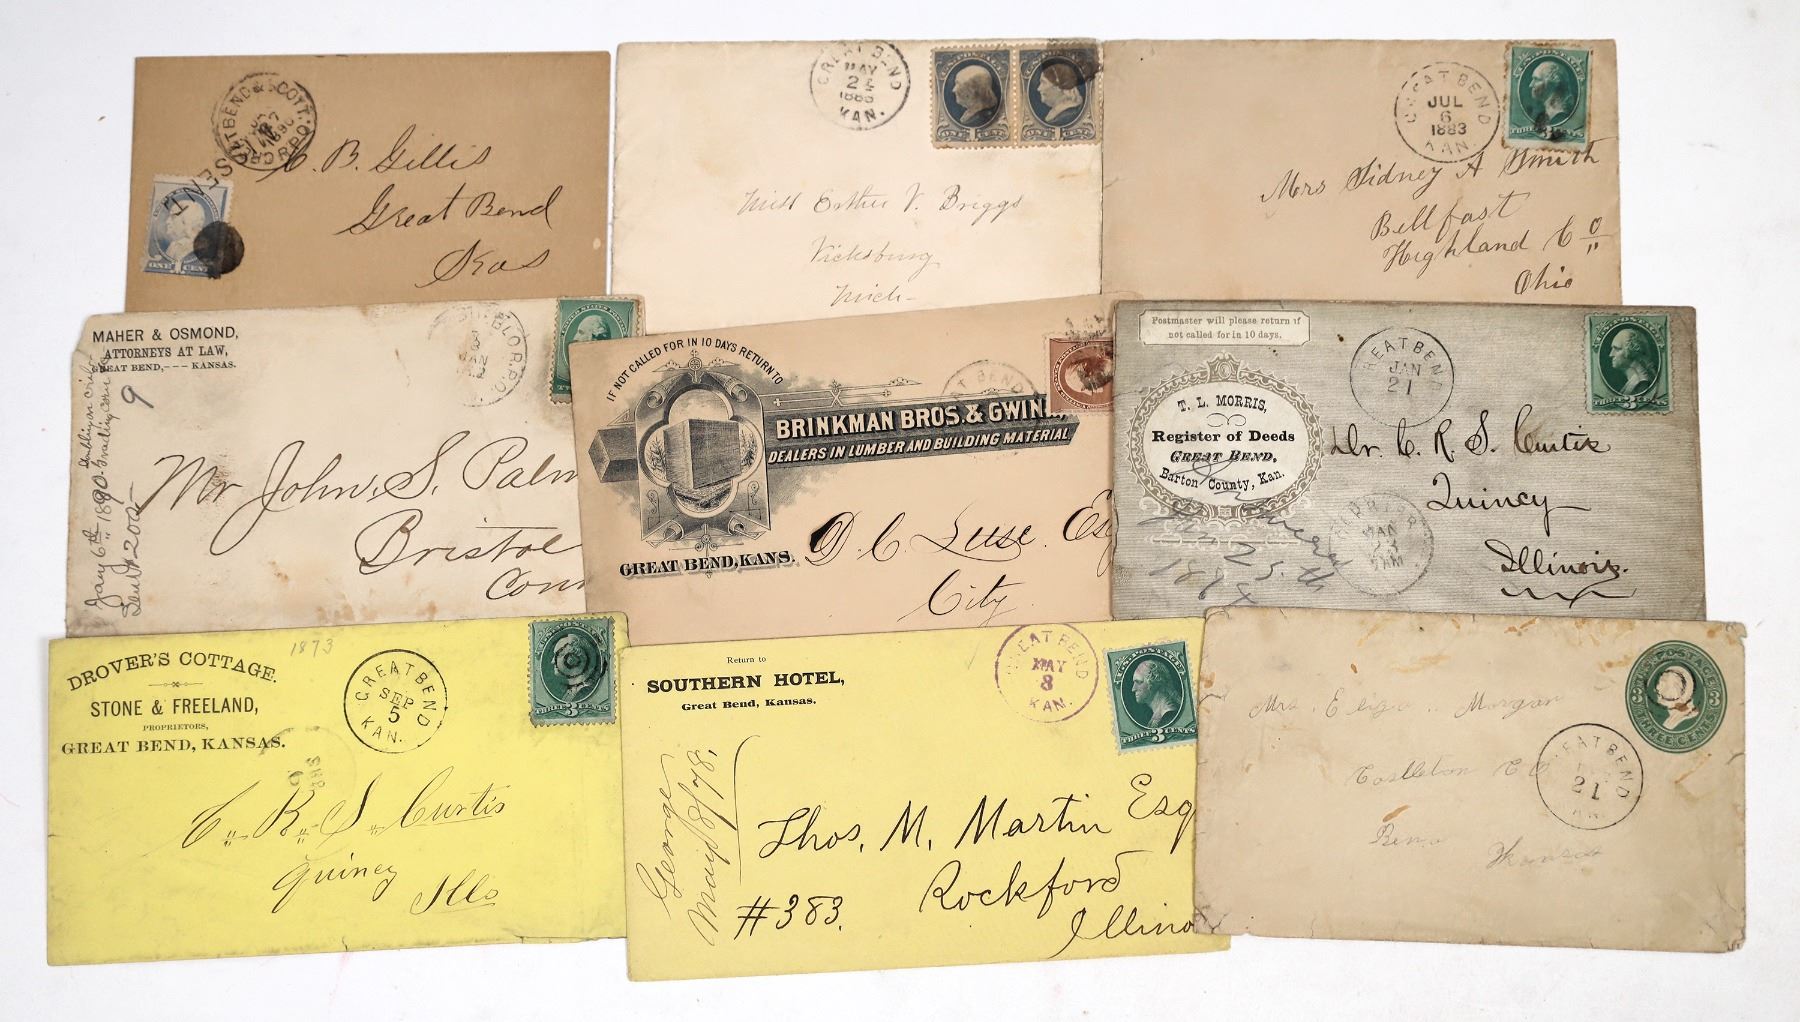 GREAT BEND & SCOTT.
R.P.O.
C. B. Gillis
Great Bend
Kas
ONE CENT
GREAT BEND
MAY
24
KAN.
U.S. POSTAGE
Miss Esther V. Briggs
Vicksburg
Mich-
GREAT BEND
JUL
6
1883
KAN
THREE CENTS
Mrs Sidney A Smith
Bellfast
Highland Co
Ohio
MAHER & OSMOND,
ATTORNEYS AT LAW,
GREAT BEND,--- KANSAS.
9
Jany 6th 1890
R.P.O.
Mr John. S. Palm
Bristol
Conn
IF NOT CALLED FOR IN 10 DAYS RETURN TO
BRINKMAN BROS. & GWINN,
DEALERS IN LUMBER AND BUILDING MATERIAL
GREAT BEND, KANS.
T BEND
D. C. Luse. Esq
City
Postmaster will please return if
not called for in 10 days.
T. L. MORRIS,
Register of Deeds
GREAT BEND,
Barton County, Kan.
GREAT BEND
JAN
21
U.S. POSTAGE
THREE 3 CENTS
Dr. C. R. S. Curtis
Quincy
Illinois.
JAN
23
7AM
DROVER'S COTTAGE.
STONE & FREELAND,
PROPRIETORS,
GREAT BEND, KANSAS.
1873
GREAT BEND
SEP
5
KAN.
THREE 3 CENTS
C. R. S. Curtis
Quincy
Ills
Return to
SOUTHERN HOTEL,
Great Bend, Kansas.
GREAT BEND
MAY
8
KAN.
U.S. POSTAGE
THREE 3 CENTS
George
May 8/78.
Thos. M. Martin Esq
#383.
Rockford
Illino
U.S. POSTAGE
3 3
THREE CENTS
GREAT BEND
21
KAN.
Mrs. Eliza. Morgan
Castleton
Reno
Kansas